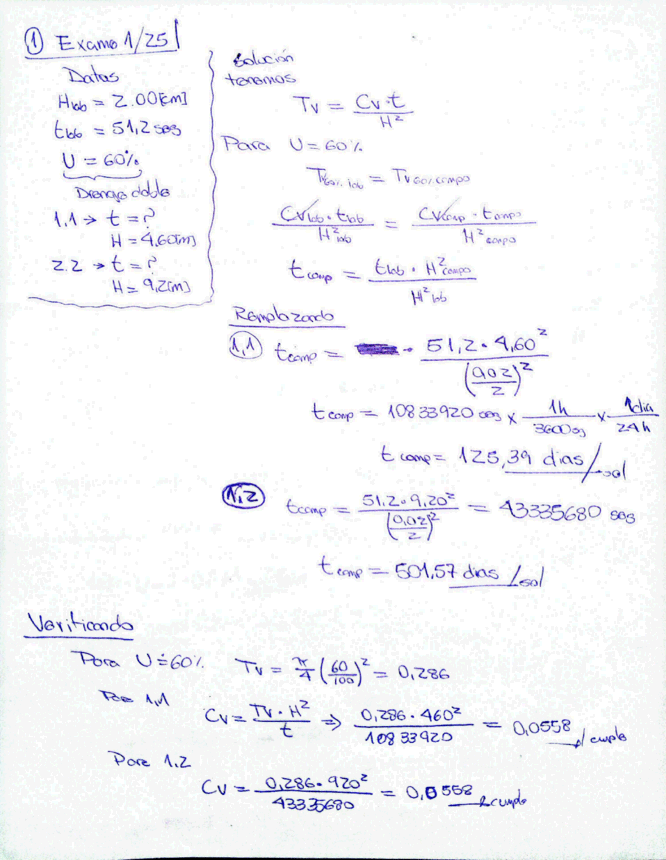 ① Examo 1/25
Datos
Hlab = 2.00[cm]
tlab = 51,2 seg
U = 60%
Drenaje doble
1.1 → t = ?
H = 4,60[m]
2.2 → t = ?
H = 9,2[m]
Solución
tenemos
Tv = Cv·t / H²
Para U = 60%
Tv60% lab = Tv60% campo
Cvlab · tlab / H²lab = Cvcamp · tcampo / H²campo
tcamp = tlab · H²campo / H²lab
Remplazando
1,1 tcamp = 51,2 · 4,60² / (0,02/2)²
tcamp = 10833920 seg x 1h / 3600sg x 1dia / 24h
tcamp = 125,39 dias /sol
1.2 tcamp = 51,2 · 9,20² / (0,02/2)² = 43335680 seg
tcamp = 501,57 dias /sol
Verificando
Para U=60% Tv = π/4 (60/100)² = 0,286
Para 1,1
Cv = Tv · H² / t ⇒ 0,286 · 460² / 10833920 = 0,0558 // cumple
Para 1.2
Cv = 0,286 · 920² / 43335680 = 0,0558 cumple